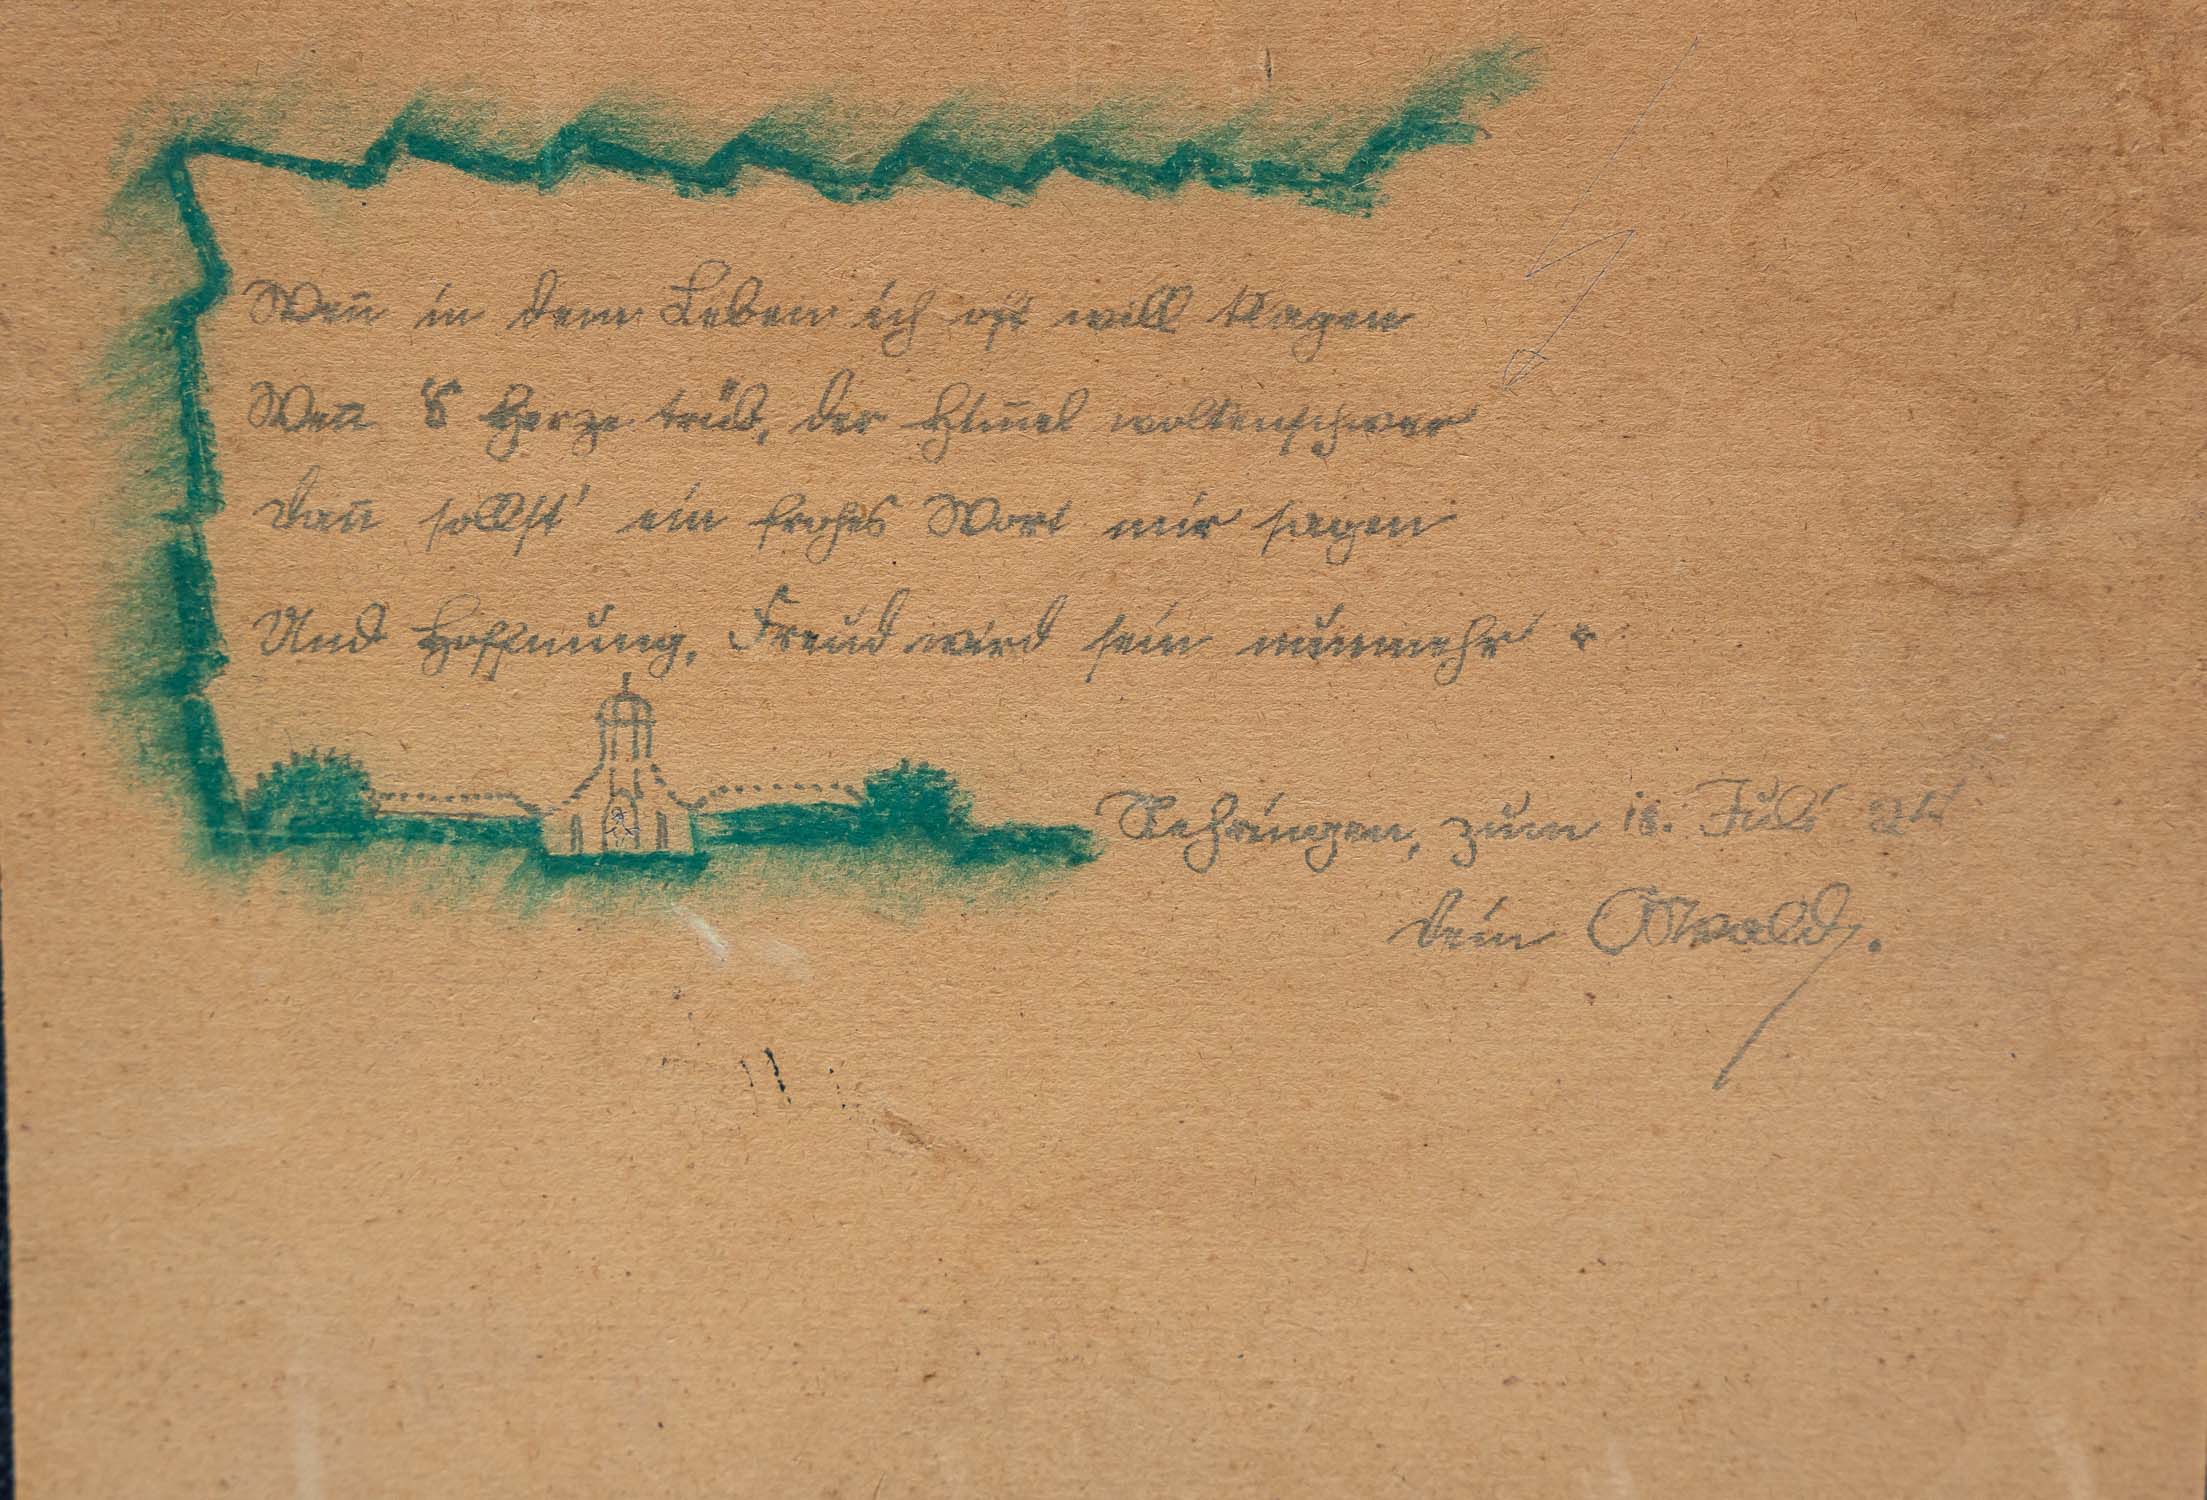 Wen̄ in dem Leben ich oft will klagen
Wen̄ 's Herze trüb, der Him̄el wolkenschwer
Dan̄ sollst' ein frohes Wort mir sagen
Und Hoffnung, Freud wird sein nunmehr.
zum 18. Juli
Dein Oswald.